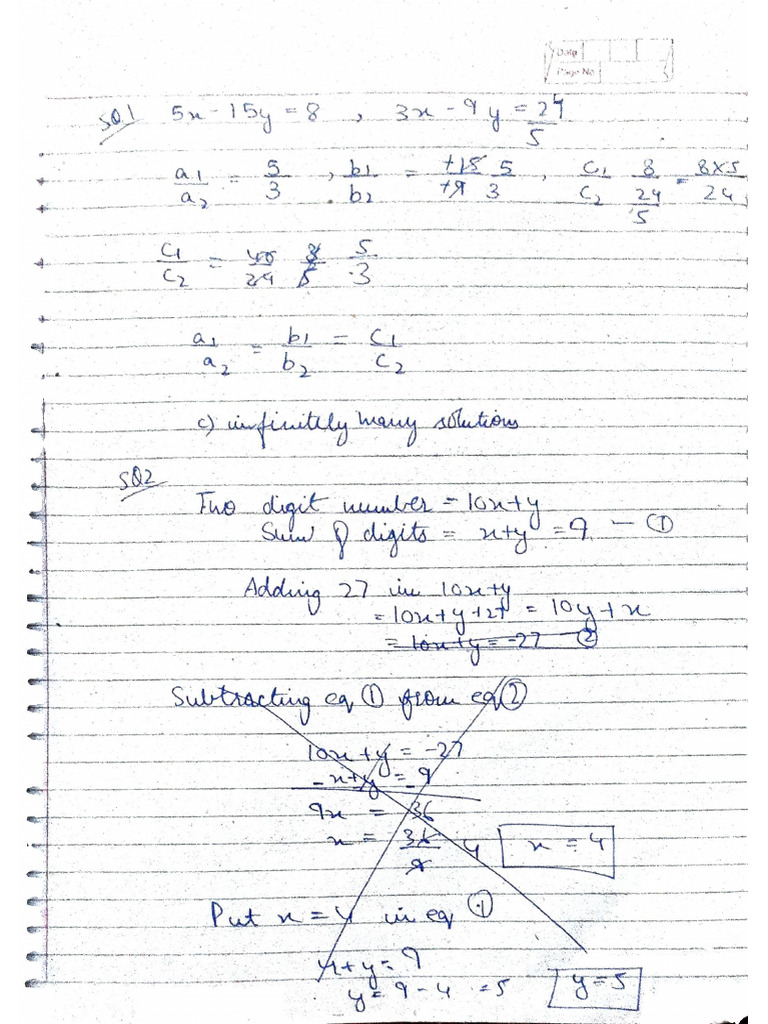 Date
Page No.
SQ1 5x - 15y = 8 , 3x - 9y = 24/5
a1/a2 = 5/3 , b1/b2 = +15/+9 5/3 , C1/C2 8/(24/5) = 8×5/24
C1/C2 = 40/24 8/5 5/3
a1/a2 = b1/b2 = C1/C2
c) infinitely many solutions
SQ2
Two digit number = 10x+y
Sum of digits = x+y = 9 - ①
Adding 27 in 10x+y
= 10x+y+27 = 10y+x
= 10x+y = -27 ②
Subtracting eq ① from eq ②
10x+y = -27
-x+y = -9
9x = 36
x = 36/9 4 x = 4
Put x = 4 in eq ①
4+y = 9
y = 9-4 = 5 y = 5